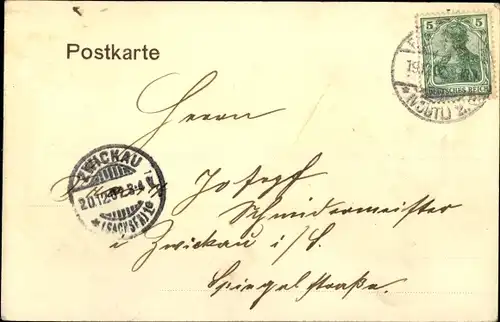 Postkarte
5
DEUTSCHES REICH
19
Herrn
ZWICKAU
20.12.04.8-9
* (SACHSEN) *
Josepf
Schneidermeister
i Zwickau i/S.
Spiegelstraße.